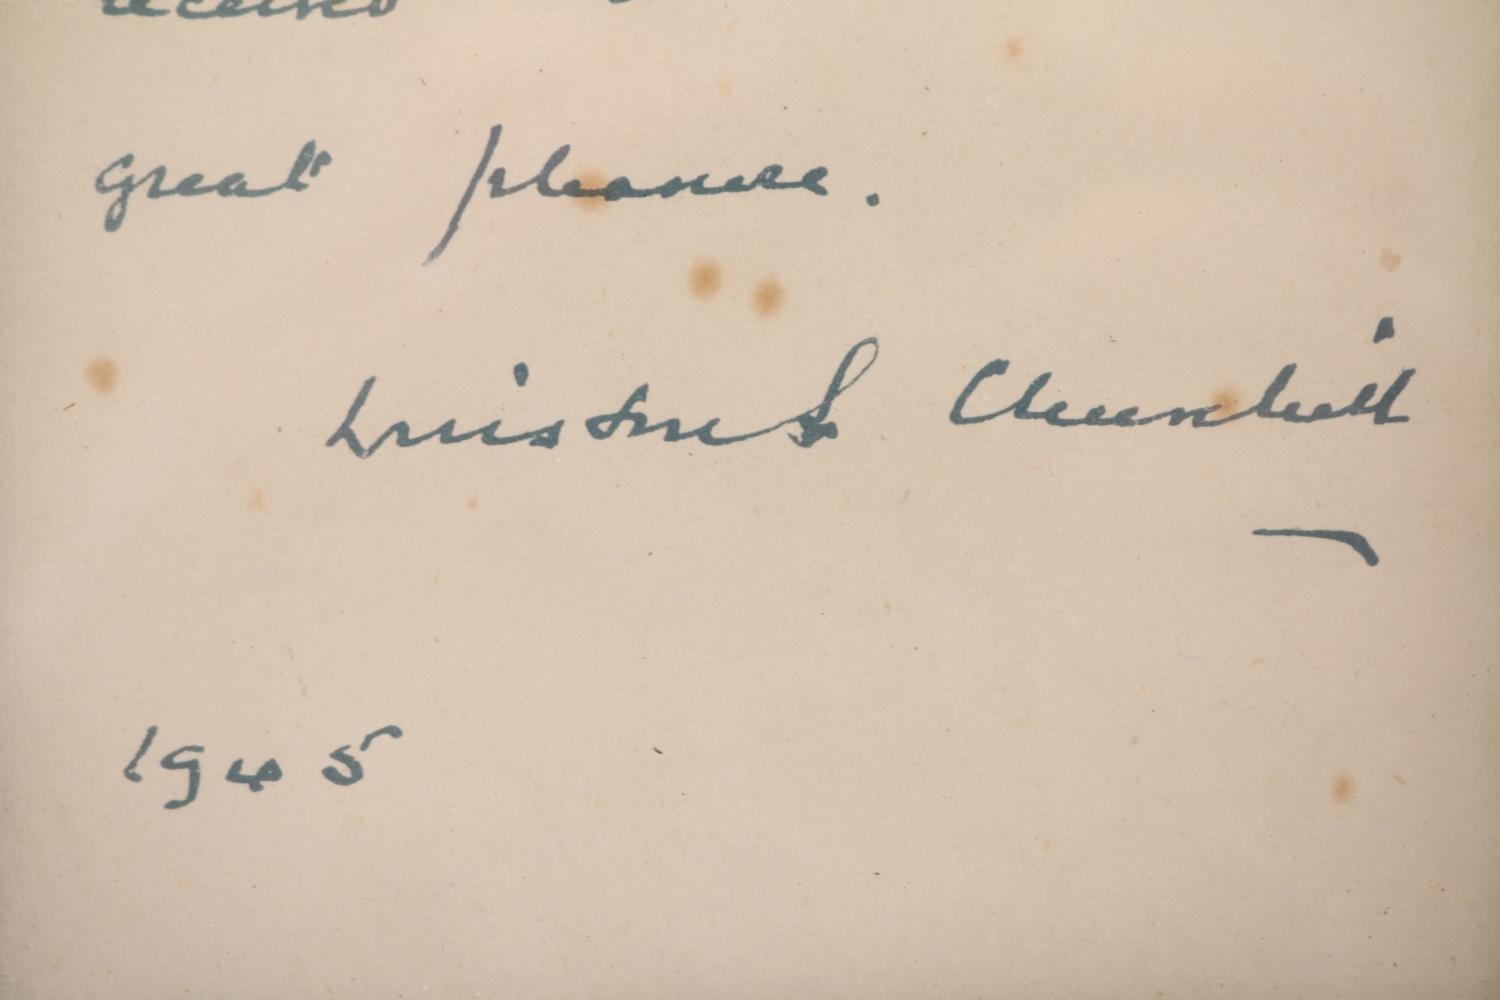 received
great pleasure.
Winston S. Churchill
1945